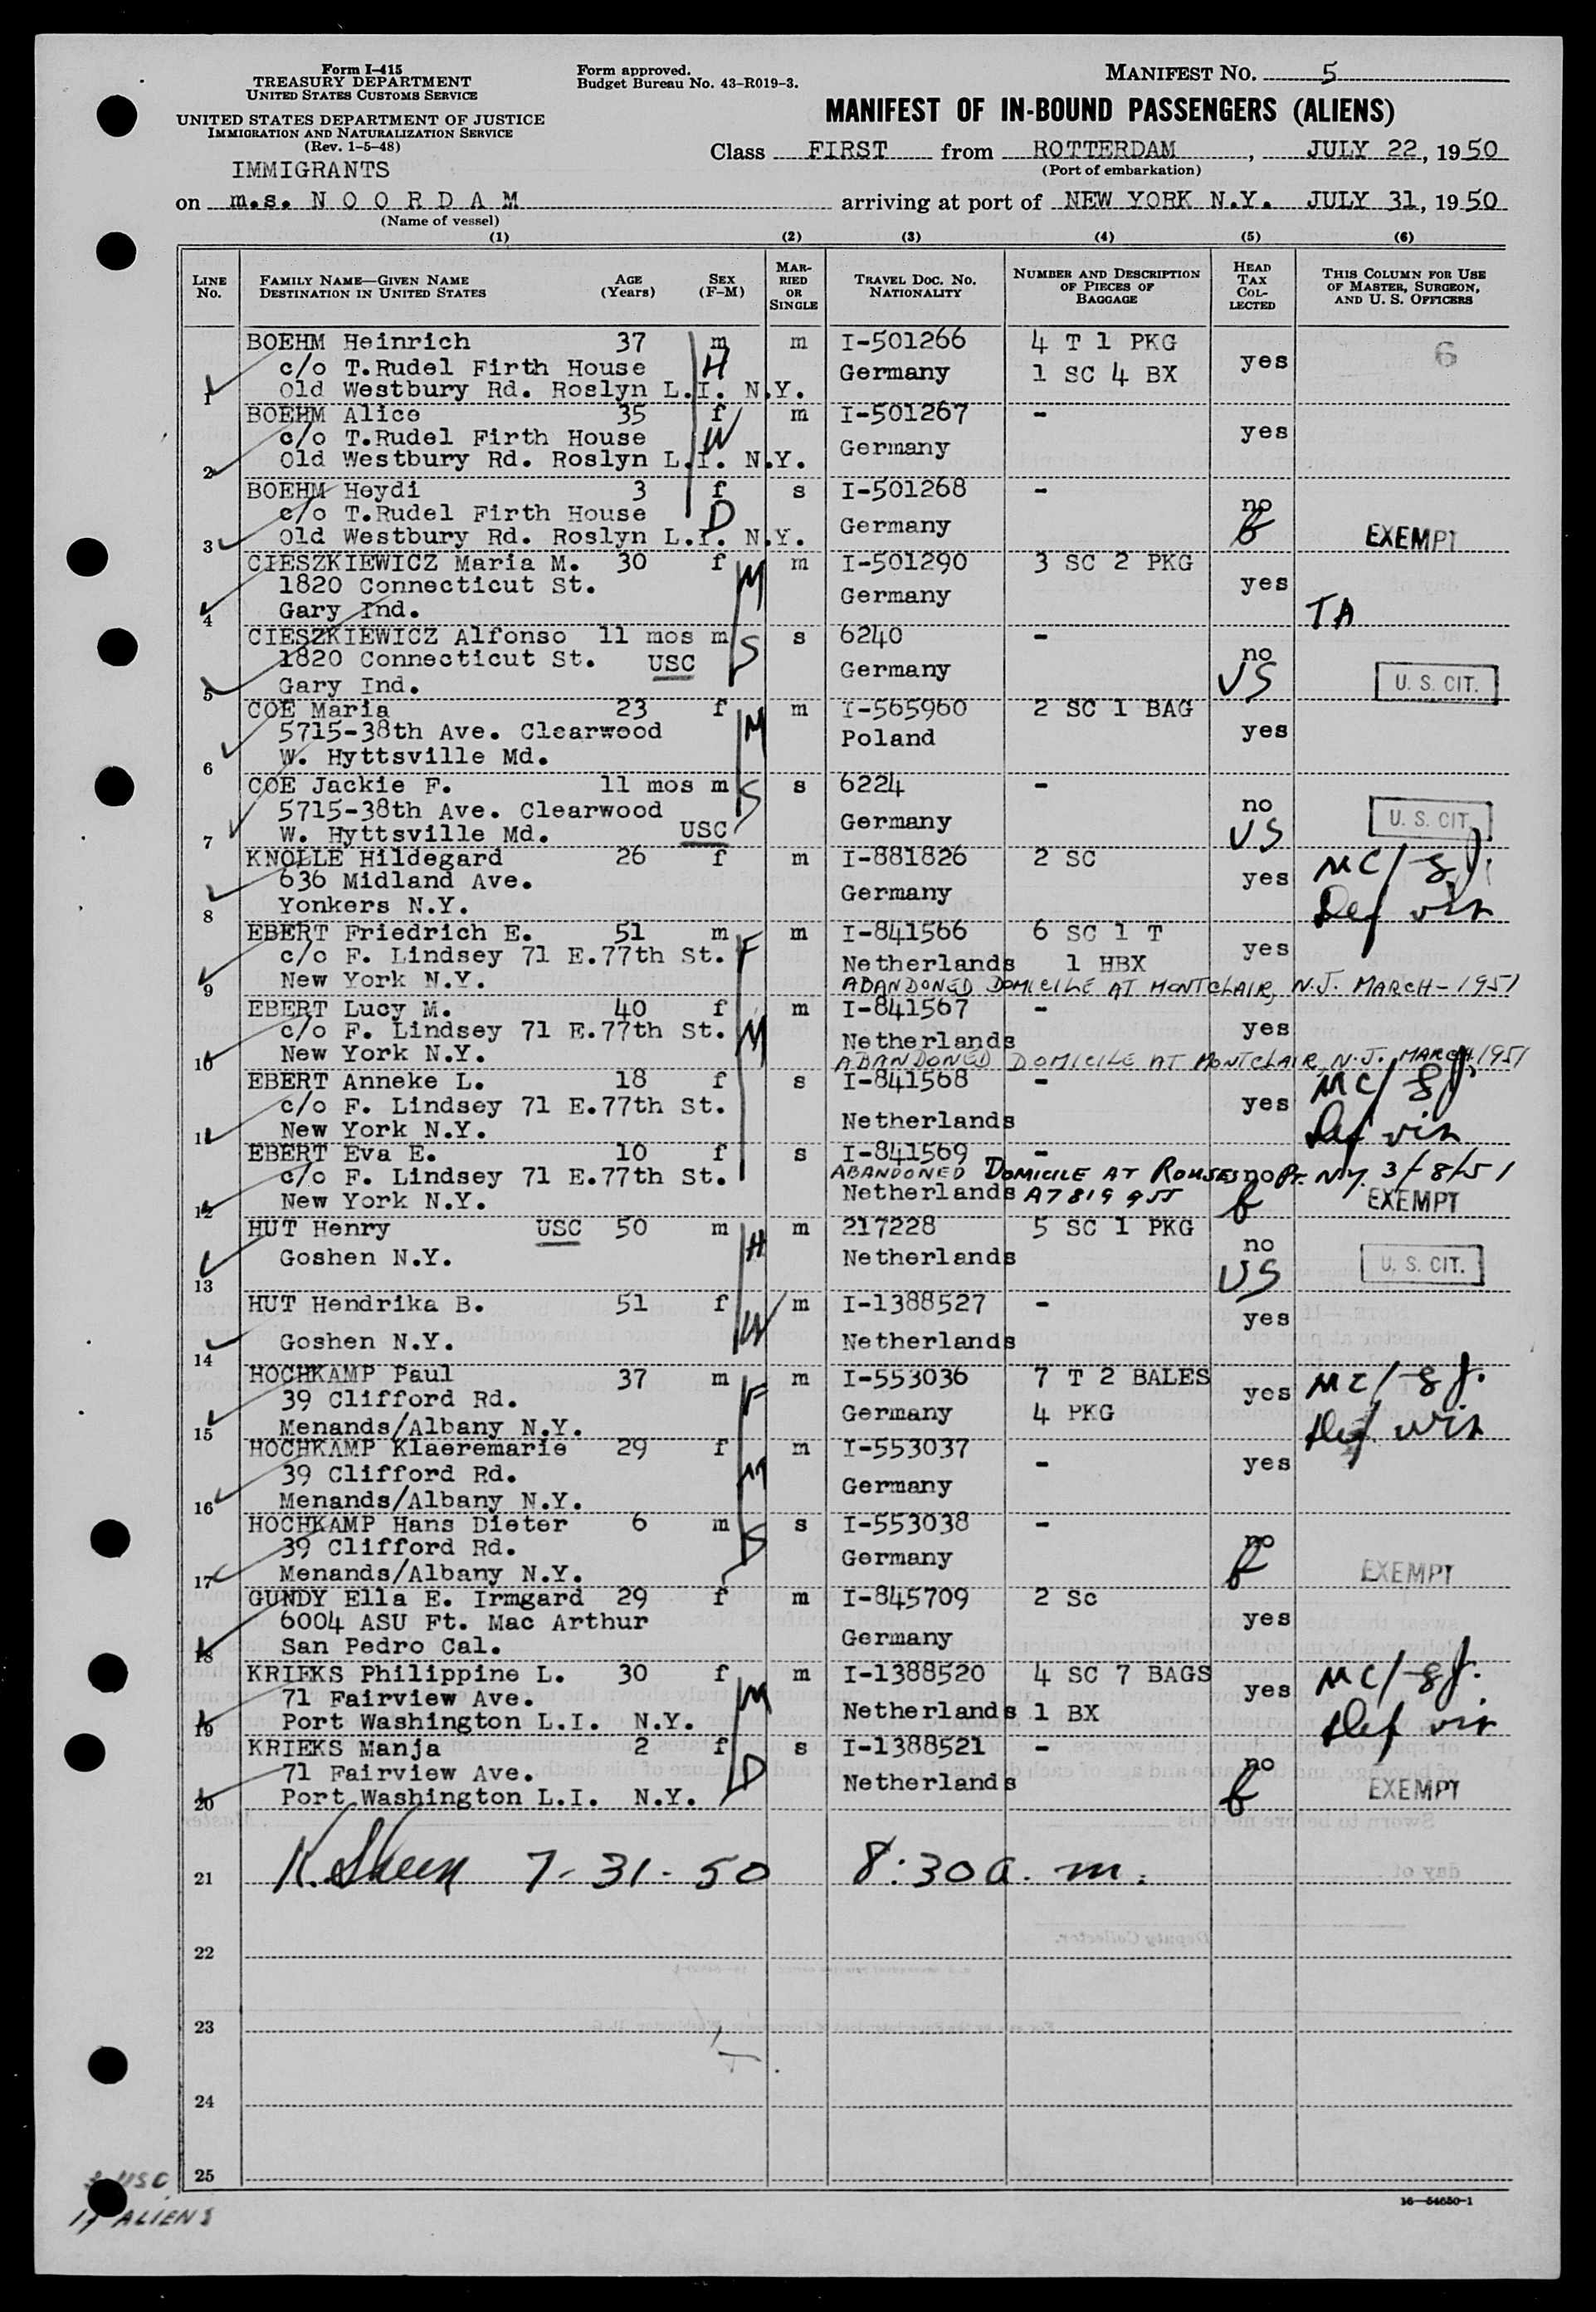 Form I-415
TREASURY DEPARTMENT
UNITED STATES CUSTOMS SERVICE
UNITED STATES DEPARTMENT OF JUSTICE
IMMIGRATION AND NATURALIZATION SERVICE
(Rev. 1-5-48)
Form approved.
Budget Bureau No. 43-R019-3.
MANIFEST NO. 5
MANIFEST OF IN-BOUND PASSENGERS (ALIENS)
IMMIGRANTS
Class FIRST from ROTTERDAM, JULY 22, 1950
(Port of embarkation)
on m.s. NOORDAM arriving at port of NEW YORK N.Y. JULY 31, 1950
(Name of vessel)
(1) (2) (3) (4) (5) (6)
LINE No. FAMILY NAME—GIVEN NAME DESTINATION IN UNITED STATES AGE (Years) SEX (F-M) MARRIED OR SINGLE TRAVEL DOC. NO. NATIONALITY NUMBER AND DESCRIPTION OF PIECES OF BAGGAGE HEAD TAX COLLECTED THIS COLUMN FOR USE OF MASTER, SURGEON, AND U. S. OFFICERS
BOEHM Heinrich 37 m m I-501266 4 T 1 PKG
c/o T.Rudel Firth House H Germany 1 SC 4 BX yes 6
1 Old Westbury Rd. Roslyn L.I. N.Y.
BOEHM Alice 35 f m I-501267 -
c/o T.Rudel Firth House W Germany yes
2 Old Westbury Rd. Roslyn L.I. N.Y.
BOEHM Heydi 3 f s I-501268 -
c/o T.Rudel Firth House D Germany no
3 Old Westbury Rd. Roslyn L.I. N.Y. EXEMPT
CIESZKIEWICZ Maria M. 30 f m I-501290 3 SC 2 PKG
1820 Connecticut St. M Germany yes
4 Gary Ind. TA
CIESZKIEWICZ Alfonso 11 mos m s 6240 -
1820 Connecticut St. USC S Germany no
5 Gary Ind. US U. S. CIT.
COE Maria 23 f m I-565960 2 SC 1 BAG
5715-38th Ave. Clearwood M Poland yes
6 W. Hyttsville Md.
COE Jackie F. 11 mos m s 6224 -
5715-38th Ave. Clearwood S Germany no
7 W. Hyttsville Md. USC US U. S. CIT.
KNOLLE Hildegard 26 f m I-881826 2 SC
636 Midland Ave. Germany yes
8 Yonkers N.Y.
EBERT Friedrich E. 51 m m I-841566 6 SC 1 T
c/o F. Lindsey 71 E.77th St. F Netherlands 1 HBX yes
9 New York N.Y. ABANDONED DOMICILE AT MONTCLAIR, N.J. MARCH-1951
EBERT Lucy M. 40 f m I-841567 -
c/o F. Lindsey 71 E.77th St. M Netherlands yes
10 New York N.Y. ABANDONED DOMICILE AT MONTCLAIR, N.J. MARCH 1951
EBERT Anneke L. 18 f s I-841568 -
c/o F. Lindsey 71 E.77th St. Netherlands yes
11 New York N.Y.
EBERT Eva E. 10 f s I-841569 -
c/o F. Lindsey 71 E.77th St. ABANDONED DOMICILE AT ROUSES Pt. N.Y. 3/8/51 no
12 New York N.Y. Netherlands A7819955 EXEMPT
HUT Henry USC 50 m m 217228 5 SC 1 PKG
Goshen N.Y. H Netherlands no
13 US U. S. CIT.
HUT Hendrika B. 51 f m I-1388527 -
14 Goshen N.Y. W Netherlands yes
HOCHKAMP Paul 37 m m I-553036 7 T 2 BALES
39 Clifford Rd. F Germany 4 PKG yes
15 Menands/Albany N.Y.
HOCHKAMP Klaeremarie 29 f m I-553037 -
39 Clifford Rd. M Germany yes
16 Menands/Albany N.Y.
HOCHKAMP Hans Dieter 6 m s I-553038 -
39 Clifford Rd. S Germany no
17 Menands/Albany N.Y. EXEMPT
GUNDY Ella E. Irmgard 29 f m I-845709 2 Sc
6004 ASU Ft. Mac Arthur Germany yes
18 San Pedro Cal.
KRIEKS Philippine L. 30 f m I-1388520 4 SC 7 BAGS
71 Fairview Ave. M Netherlands 1 BX yes
19 Port Washington L.I. N.Y.
KRIEKS Manja 2 f s I-1388521 -
71 Fairview Ave. D Netherlands no
20 Port Washington L.I. N.Y. EXEMPT
21 7-31-50 8:30 a.m.
22
23
24
25
USC
17 ALIENS
16-54650-1